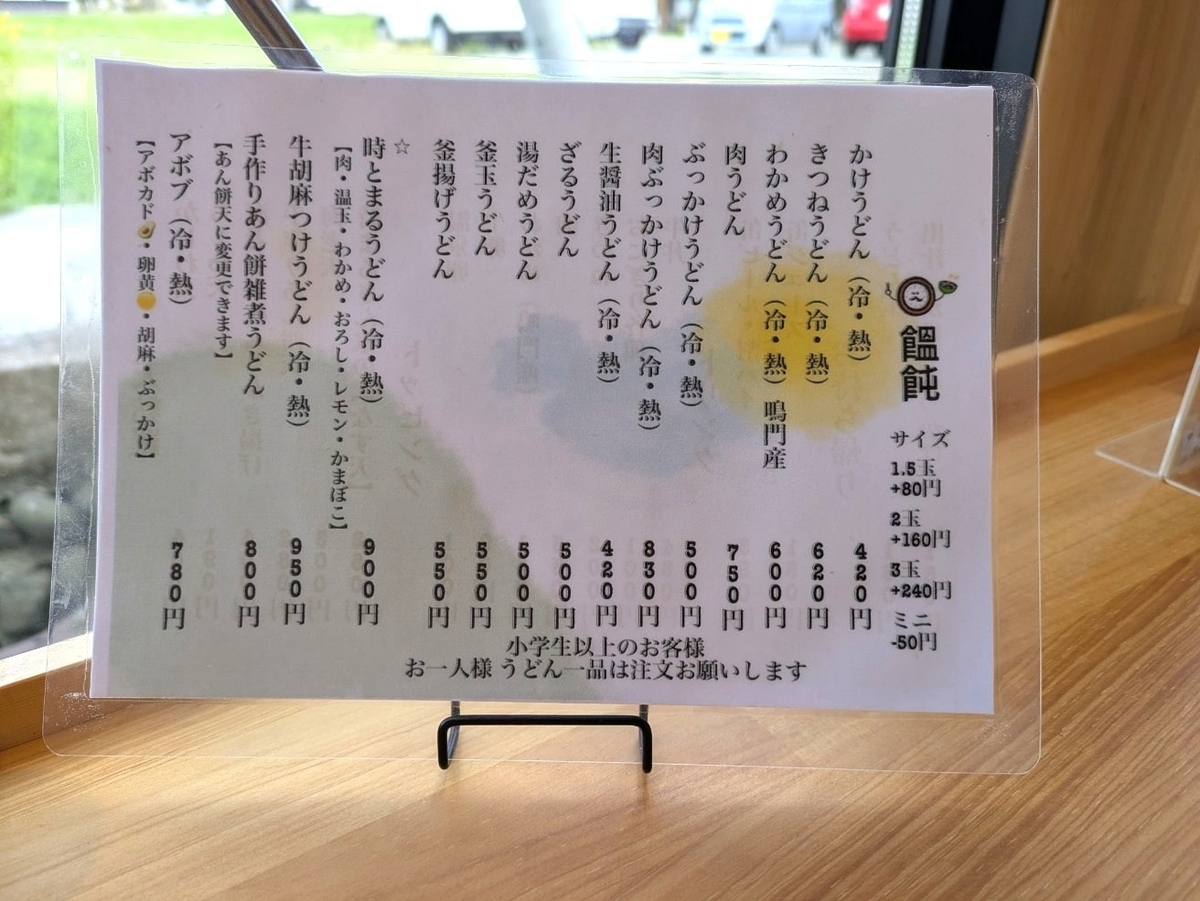 饂飩
サイズ
1.5玉
+80円
2玉
+160円
3玉
+240円
ミニ
-50円
かけうどん（冷・熱） 420円
きつねうどん（冷・熱） 620円
わかめうどん（冷・熱）鳴門産 600円
肉うどん 750円
ぶっかけうどん（冷・熱） 500円
肉ぶっかけうどん（冷・熱） 830円
生醤油うどん（冷・熱） 420円
ざるうどん 500円
湯だめうどん 500円
釜玉うどん 550円
釜揚げうどん 550円
☆
時とまるうどん（冷・熱） 900円
【肉・温玉・わかめ・おろし・レモン・かまぼこ】
牛胡麻つけうどん（冷・熱） 950円
手作りあん餅雑煮うどん 800円
【あん餅天に変更できます】
アボブ（冷・熱） 780円
【アボカド🥑・卵黄🟡・胡麻・ぶっかけ】
小学生以上のお客様
お一人様 うどん一品は注文お願いします